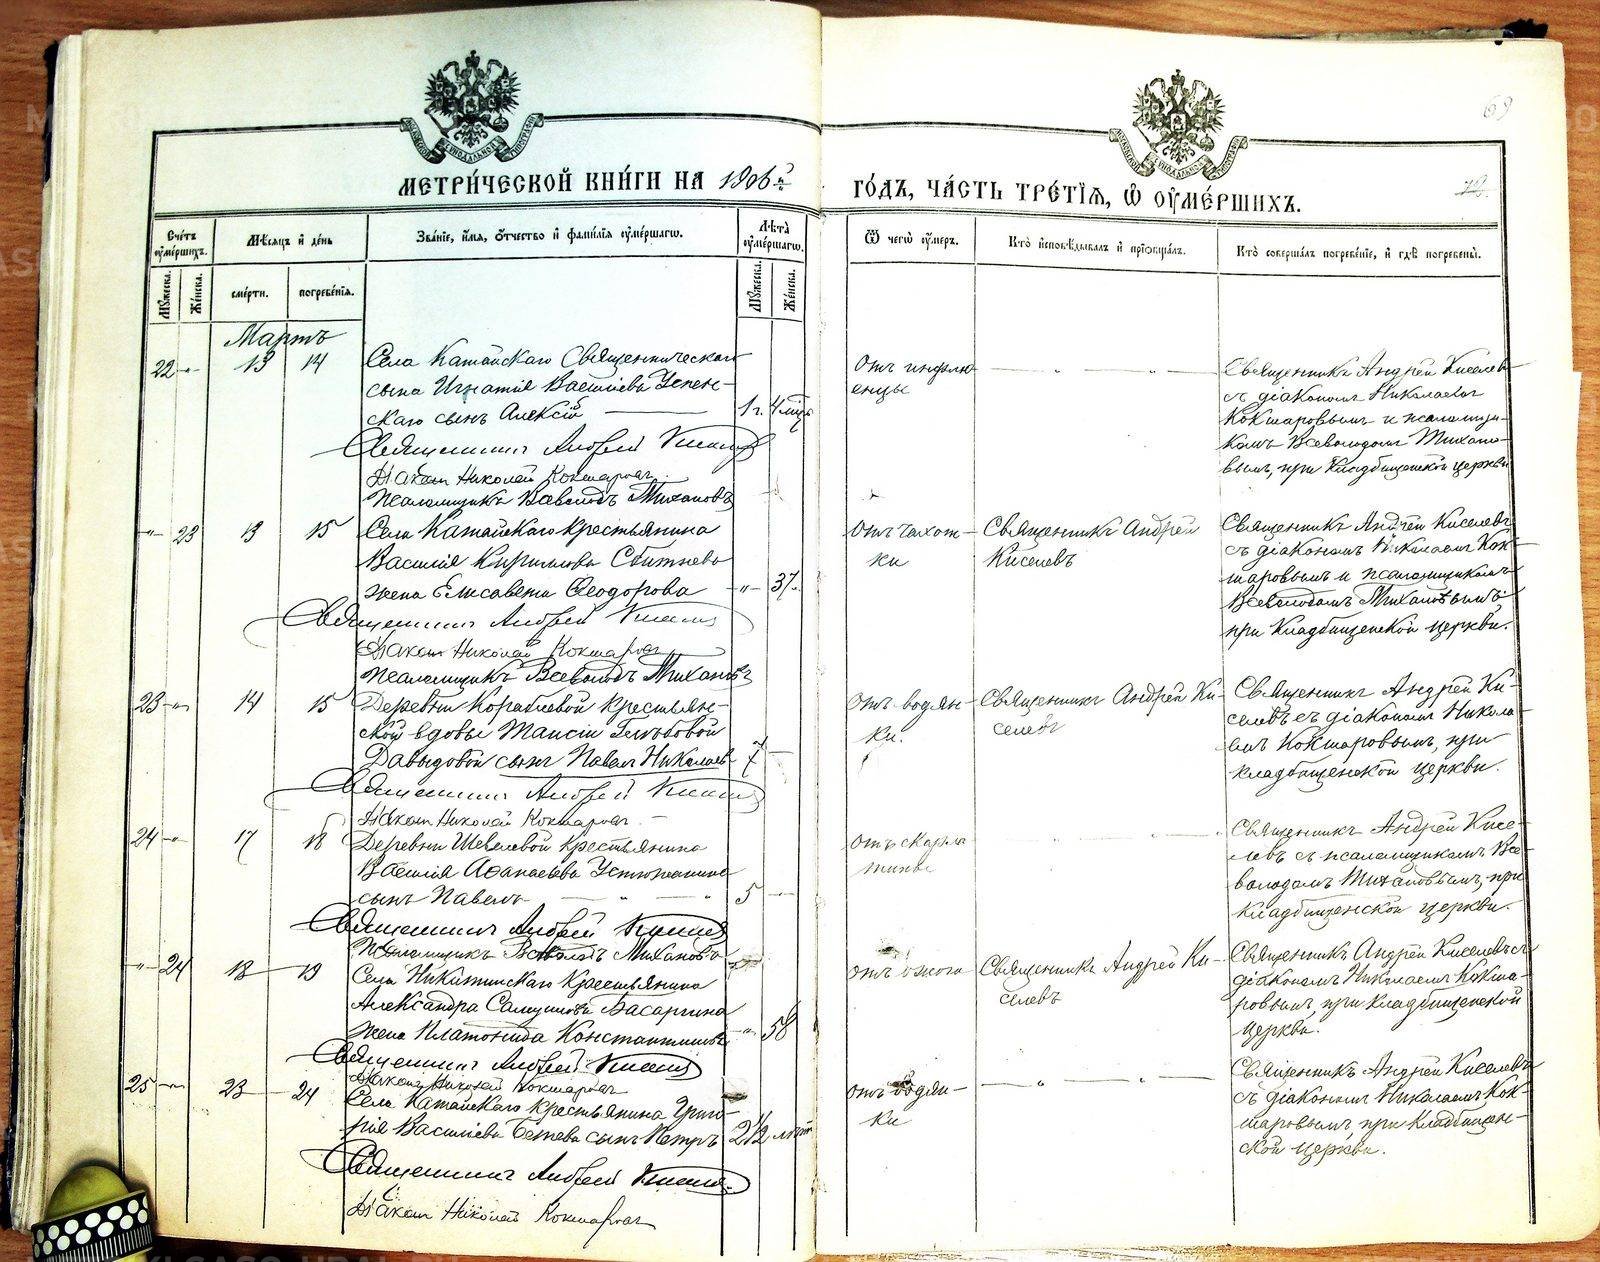 МЕТРИ́ЧЕСКОЙ КНИ́ГИ НА 1906й
ГО́ДЪ, ЧА́СТЬ ТРЕ́ТІѦ, Ѡ ОУМЕ́РШИХЪ.
69
Сче́тъ оуме́ршихъ.
Мѣ́сѧцъ и день
Зва́ніе, и́мѧ, ѻ́тчество и фами́лїѧ оуме́ршагѡ.
Лѣ́та оуме́ршагѡ.
Ѿ чегѡ̀ оу́меръ.
Кто̀ исповѣ́дывалъ и прїѡбща́лъ.
Кто̀ соверша́лъ погребе́нїе, и гдѣ̀ погребены̀.
Мꙋ́жеска. Же́нска.
сме́рти. погребе́нїѧ.
Мꙋ́жеска. Же́нска.
Мартъ
22 -"- 13 14
Села Катайскаго Священническаго
сына Игнатія Васіліева Успен-
скаго сынъ Алексій 1 г. 4 мѣс
Священникъ Андрей Киселев
Діакон Николай Кокшаров
Псаломщикъ Всеволодъ Тихановъ
Отъ инфлю-
енцы
Священникъ Андрей Киселевъ
съ діакономъ Николаемъ
Кокшаровымъ и псаломщи-
комъ Всеволодомъ Тихано-
вымъ, при кладбищенской церкви
-"- 23 13 15
Села Катайскаго крестьянина
Василія Кирилова Сбитнева
жена Елисавета Ѳеодорова -"- 37.
Священникъ Андрей Киселев
Діакон Николай Кокшаров
Псаломщикъ Всеволодъ Тихановъ
Отъ чахот-
ки
Священникъ Андрей
Киселевъ
Священникъ Андрей Киселевъ
съ діакономъ Николаемъ Кок-
шаровымъ и псаломщикомъ
Всеволодомъ Тихановымъ,
при кладбищенской церкви.
23 -"- 14 15
Деревни Кораблевой крестьян-
ской вдовы Таисіи Глѣбовой
Давыдовой сынъ Павелъ Николаев 7
Священникъ Андрей Киселев
Діакон Николай Кокшаров
Отъ водян-
ки.
Священникъ Андрей Ки-
селевъ
Священникъ Андрей Ки-
селевъ съ діакономъ Никола-
емъ Кокшаровымъ, при
кладбищенской церкви.
24 -"- 17 18
Деревни Шевелевой крестьянина
Василія Аѳанасіева Устюжанина
сынъ Павелъ 5
Священникъ Андрей Киселев
Псаломщикъ Всеволодъ Тихановъ
Отъ скарла-
тины
Священникъ Андрей Кисе-
левъ съ псаломщикомъ Все-
володомъ Тихановымъ, при
кладбищенской церкви.
-"- 24 18 19
Села Никитинскаго крестьянина
Александра Самуилова Басаргина
жена Платонида Константинова -"- 58
Священникъ Андрей Киселев
Діакон Николай Кокшаров
отъ ожога
Священникъ Андрей Ки-
селевъ
Священникъ Андрей Киселевъ съ
діакономъ Николаемъ Кокша-
ровымъ, при кладбищенской
церкви.
25 -"- 23 24
Села Катайскаго крестьянина Григо-
рія Василіева сынъ Петръ 2 1/2 лѣтъ
Священникъ Андрей Киселев
Діакон Николай Кокшаров
отъ водян-
ки
Священникъ Андрей Киселевъ
съ діакономъ Николаемъ Кок-
шаровымъ при кладбищен-
ской церкви.